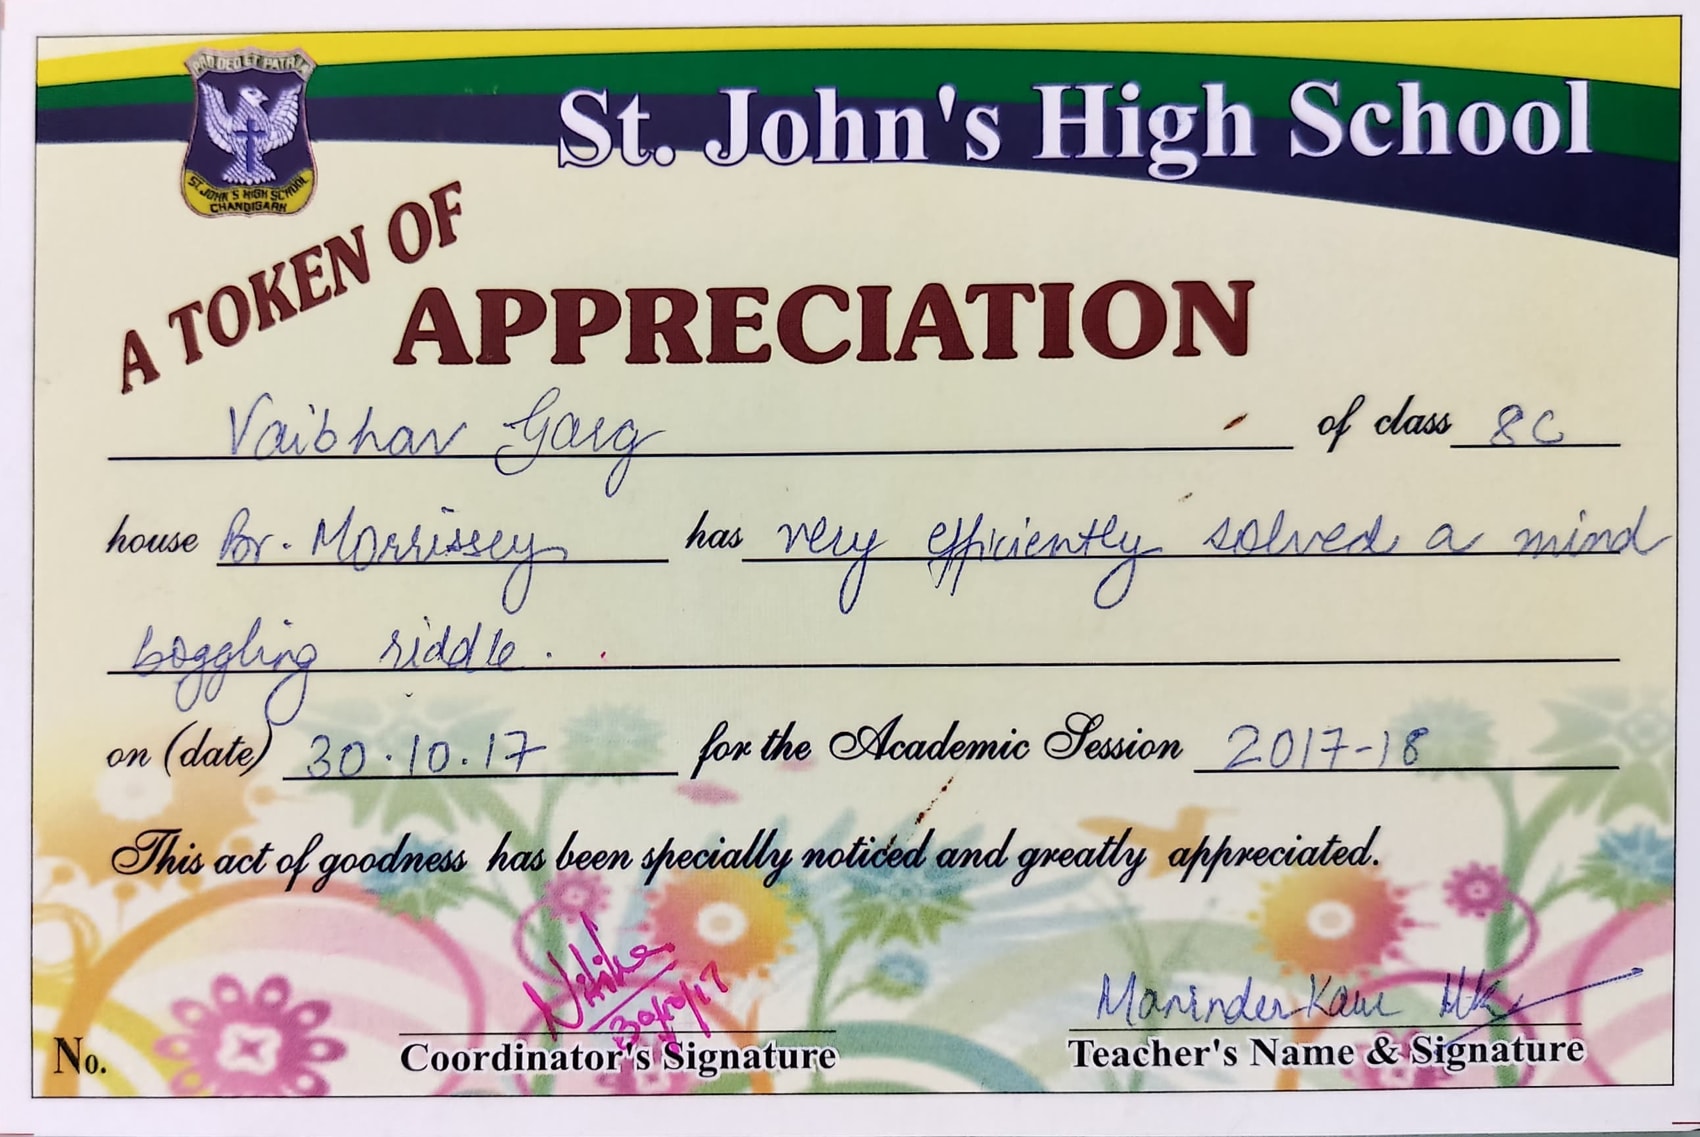 PRO DEO ET PATRIA
ST. JOHN'S HIGH SCHOOL
CHANDIGARH
St. John's High School
A TOKEN OF
APPRECIATION
Vaibhav Garg of class 8C
house Br. Morrissey has very efficiently solved a mind
boggling riddle.
on (date) 30.10.17 for the Academic Session 2017-18
This act of goodness has been specially noticed and greatly appreciated.
Nitika
30/10/17
Maninder Kaur MK
No. Coordinator's Signature Teacher's Name & Signature